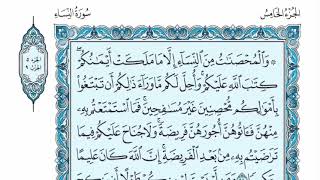 الجزء الخامس
سورة النساء
۞ وَالْمُحْصَنَٰتُ مِنَ النِّسَاءِ إِلَّا مَا مَلَكَتْ أَيْمَٰنُكُمْ
كِتَٰبَ اللَّهِ عَلَيْكُمْ وَأُحِلَّ لَكُم مَّا وَرَاءَ ذَٰلِكُمْ أَن تَبْتَغُوا
بِأَمْوَٰلِكُم مُّحْصِنِينَ غَيْرَ مُسَٰفِحِينَ فَمَا اسْتَمْتَعْتُم بِهِ
مِنْهُنَّ فَـَٔاتُوهُنَّ أُجُورَهُنَّ فَرِيضَةً وَلَا جُنَاحَ عَلَيْكُمْ فِيمَا
تَرَٰضَيْتُم بِهِ مِن بَعْدِ الْفَرِيضَةِ إِنَّ اللَّهَ كَانَ عَلِيمًا